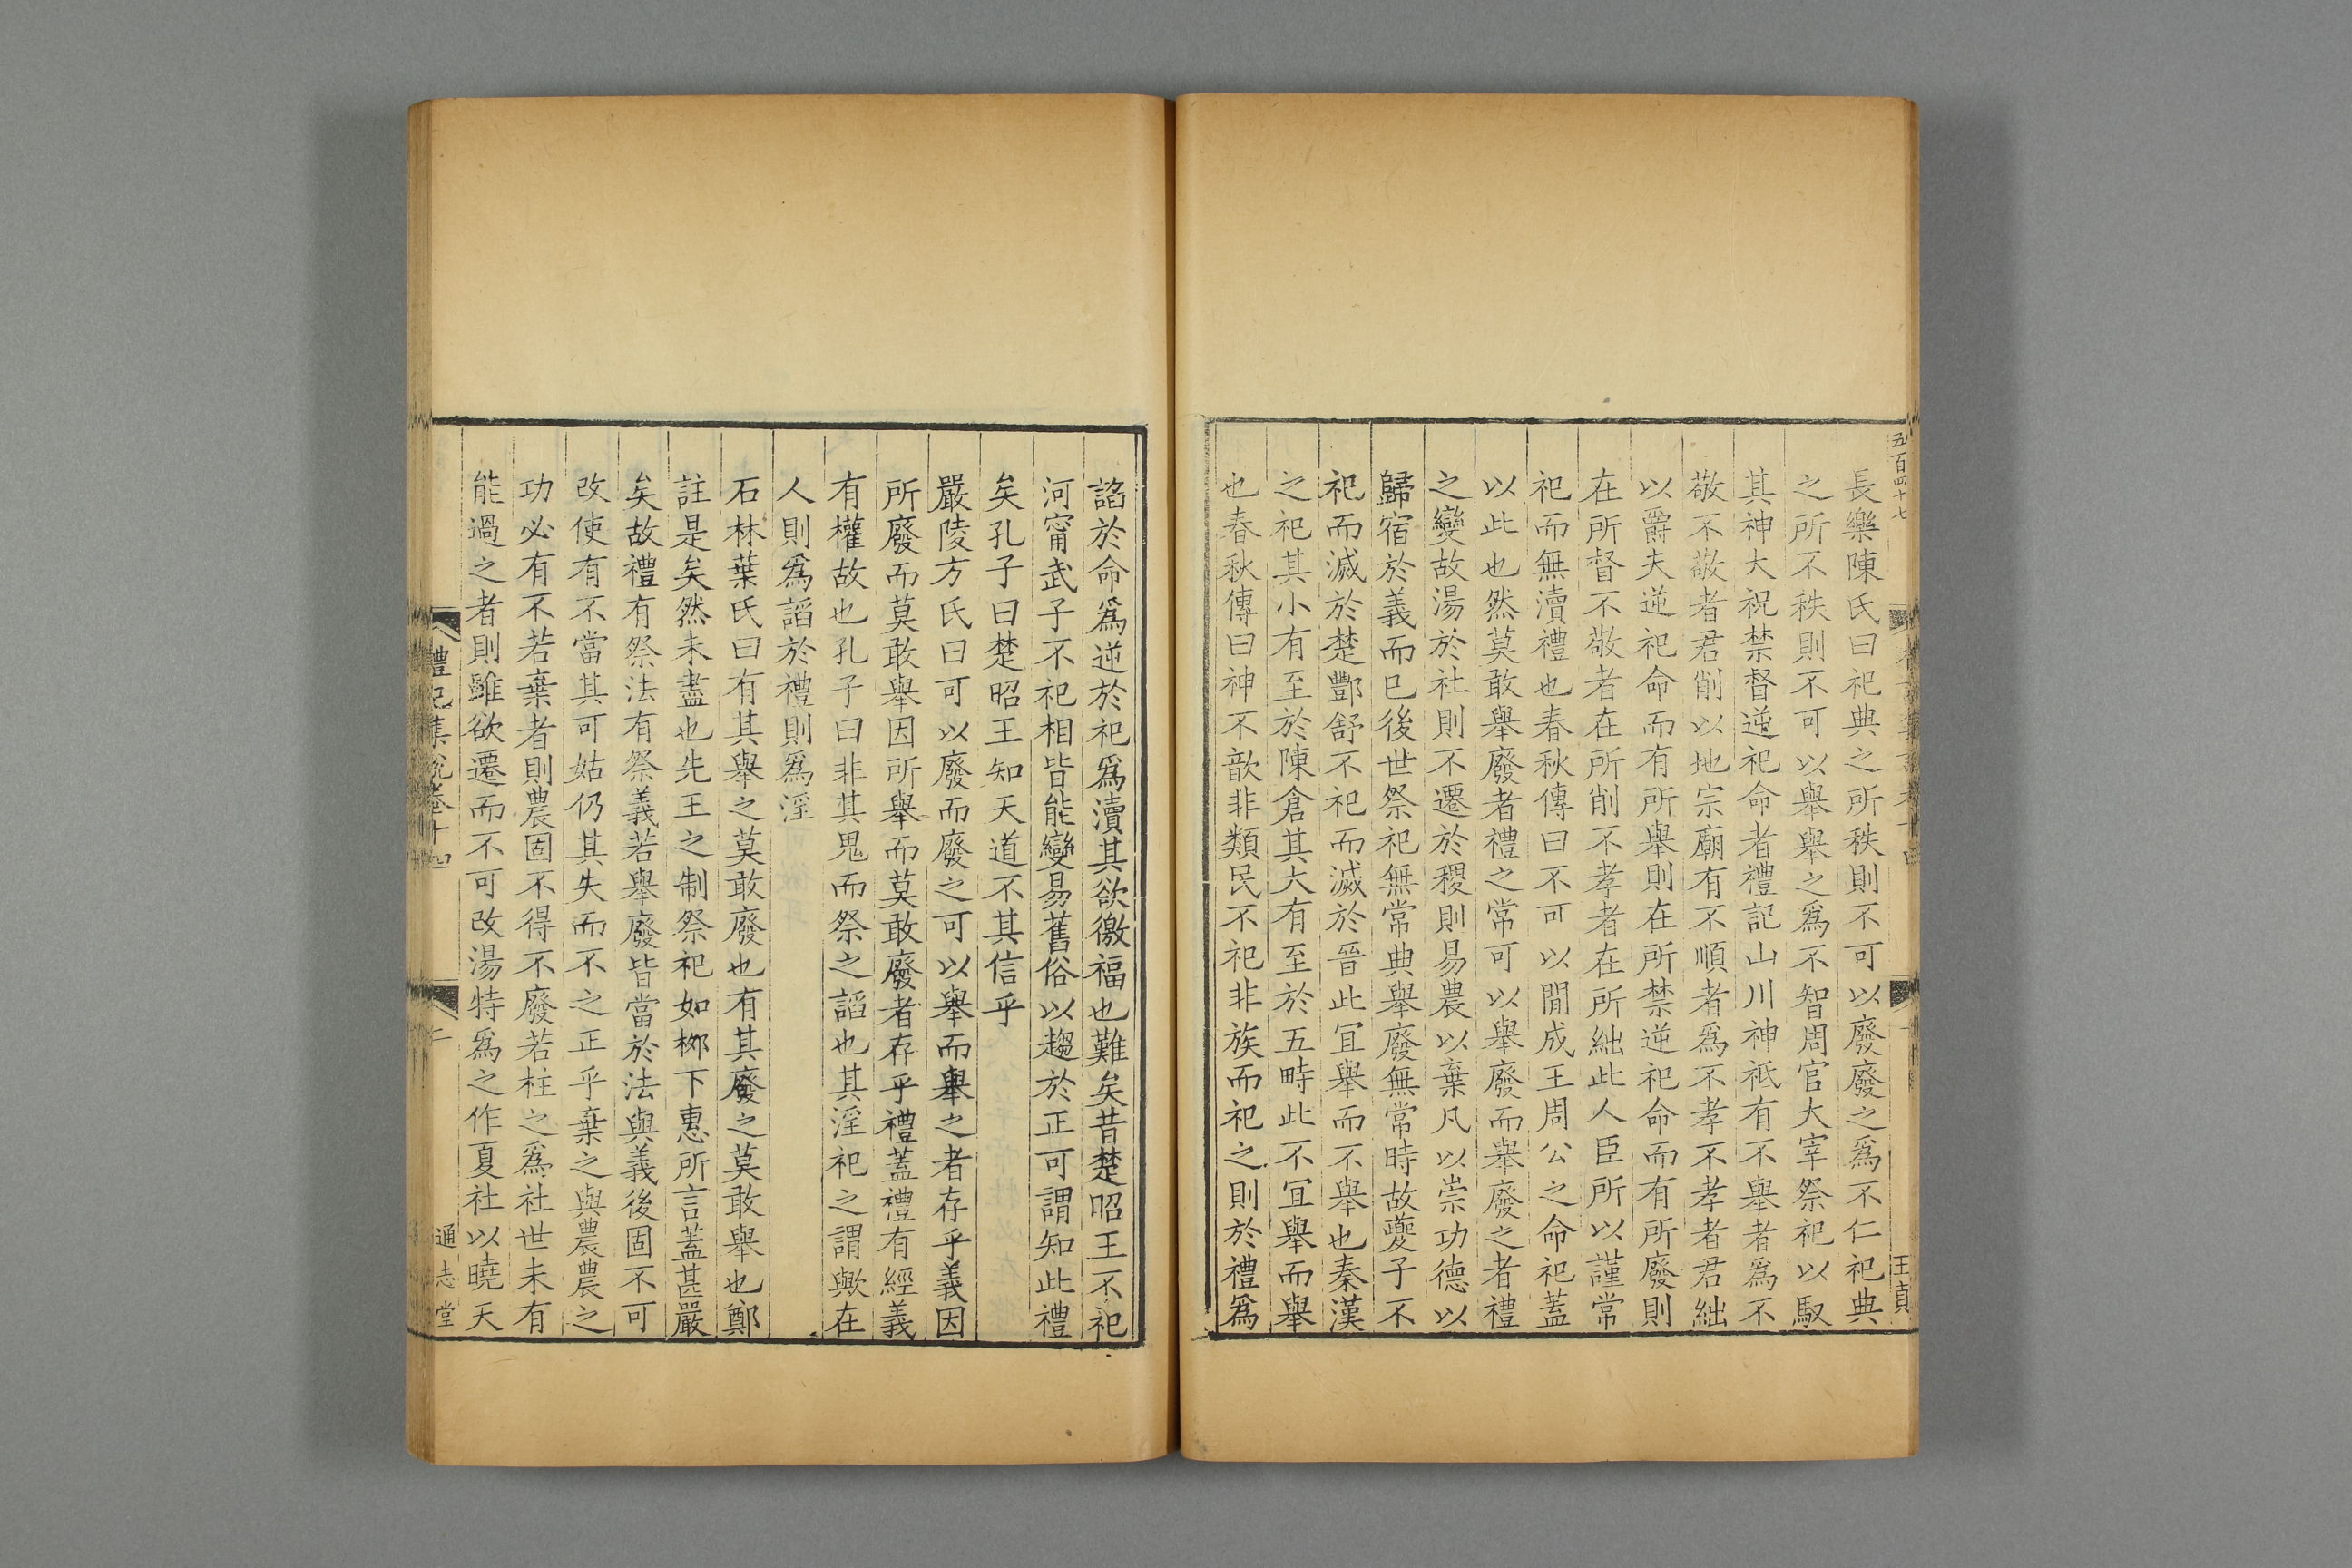 五百四十七
王貞
長樂陳氏曰祀典之所秩則不可以廢廢之爲不仁祀典
之所不秩則不可以舉舉之爲不智周官大宰祭祀以馭
其神大祝禁督逆祀命者禮記山川神祇有不舉者爲不
敬不敬者君削以地宗廟有不順者爲不孝不孝者君絀
以爵夫逆祀命而有所舉則在所禁逆祀命而有所廢則
在所督不敬者在所削不孝者在所絀此人臣所以謹常
祀而無瀆禮也春秋傳曰不可以閒成王周公之命祀蓋
以此也然莫敢舉廢者禮之常可以舉廢而舉廢之者禮
之變故湯於社則不遷於稷則易農以棄凡以崇功德以
歸宿於義而已後世祭祀無常典舉廢無常時故夔子不
祀而滅於楚酆舒不祀而滅於晉此宜舉而不舉也秦漢
之祀其小有至於陳倉其大有至於五畤此不宜舉而舉
也春秋傳曰神不歆非類民不祀非族而祀之則於禮爲
諂於命爲逆於祀爲瀆其欲徼福也難矣昔楚昭王不祀
河甯武子不祀相皆能變易舊俗以趨於正可謂知此禮
矣孔子曰楚昭王知天道不其信乎
嚴陵方氏曰可以廢而廢之可以舉而舉之者存乎義因
所廢而莫敢舉因所舉而莫敢廢者存乎禮蓋禮有經義
有權故也孔子曰非其鬼而祭之謟也其淫祀之謂歟在
人則爲謟於禮則爲淫
石林葉氏曰有其舉之莫敢廢也有其廢之莫敢舉也鄭
註是矣然未盡也先王之制祭祀如栁下惠所言蓋甚嚴
矣故禮有祭法有祭義若舉廢皆當於法與義後固不可
改使有不當其可姑仍其失而不之正乎棄之與農農之
功必有不若棄者則農固不得不廢若柱之爲社世未有
能過之者則雖欲遷而不可改湯特爲之作夏社以曉天
禮記集說卷十四
二
通志堂